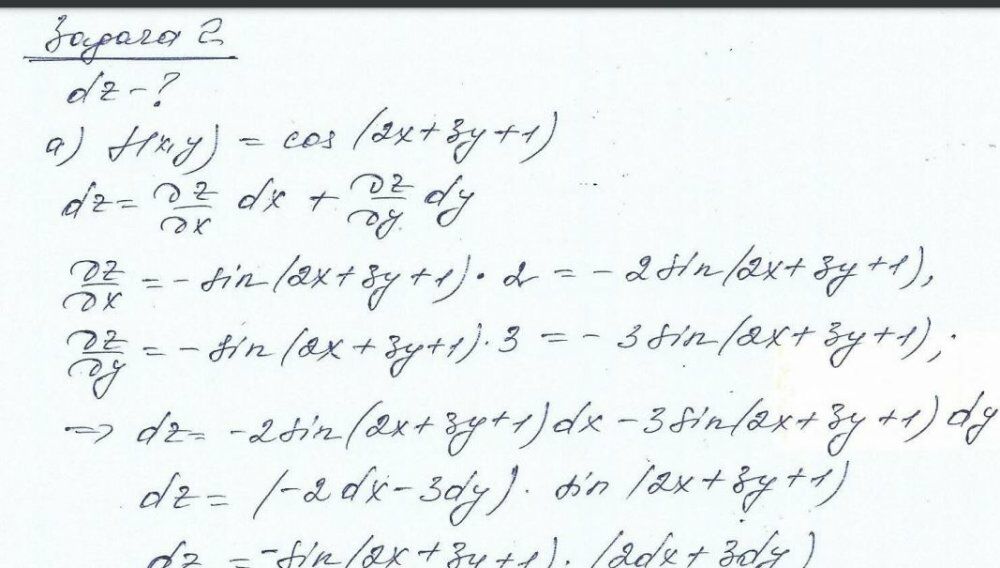 Задача 2
dz - ?
а) f(x,y) = cos (2x+3y+1)
dz = ∂z/∂x dx + ∂z/∂y dy
∂z/∂x = - sin (2x+3y+1) · 2 = - 2 sin (2x+3y+1),
∂z/∂y = - sin (2x+3y+1) · 3 = - 3 sin (2x+3y+1);
=> dz = -2 sin (2x+3y+1) dx - 3 sin (2x+3y+1) dy
dz = (-2dx-3dy) · sin (2x+3y+1)
dz = - sin (2x+3y+1) · (2dx+3dy)